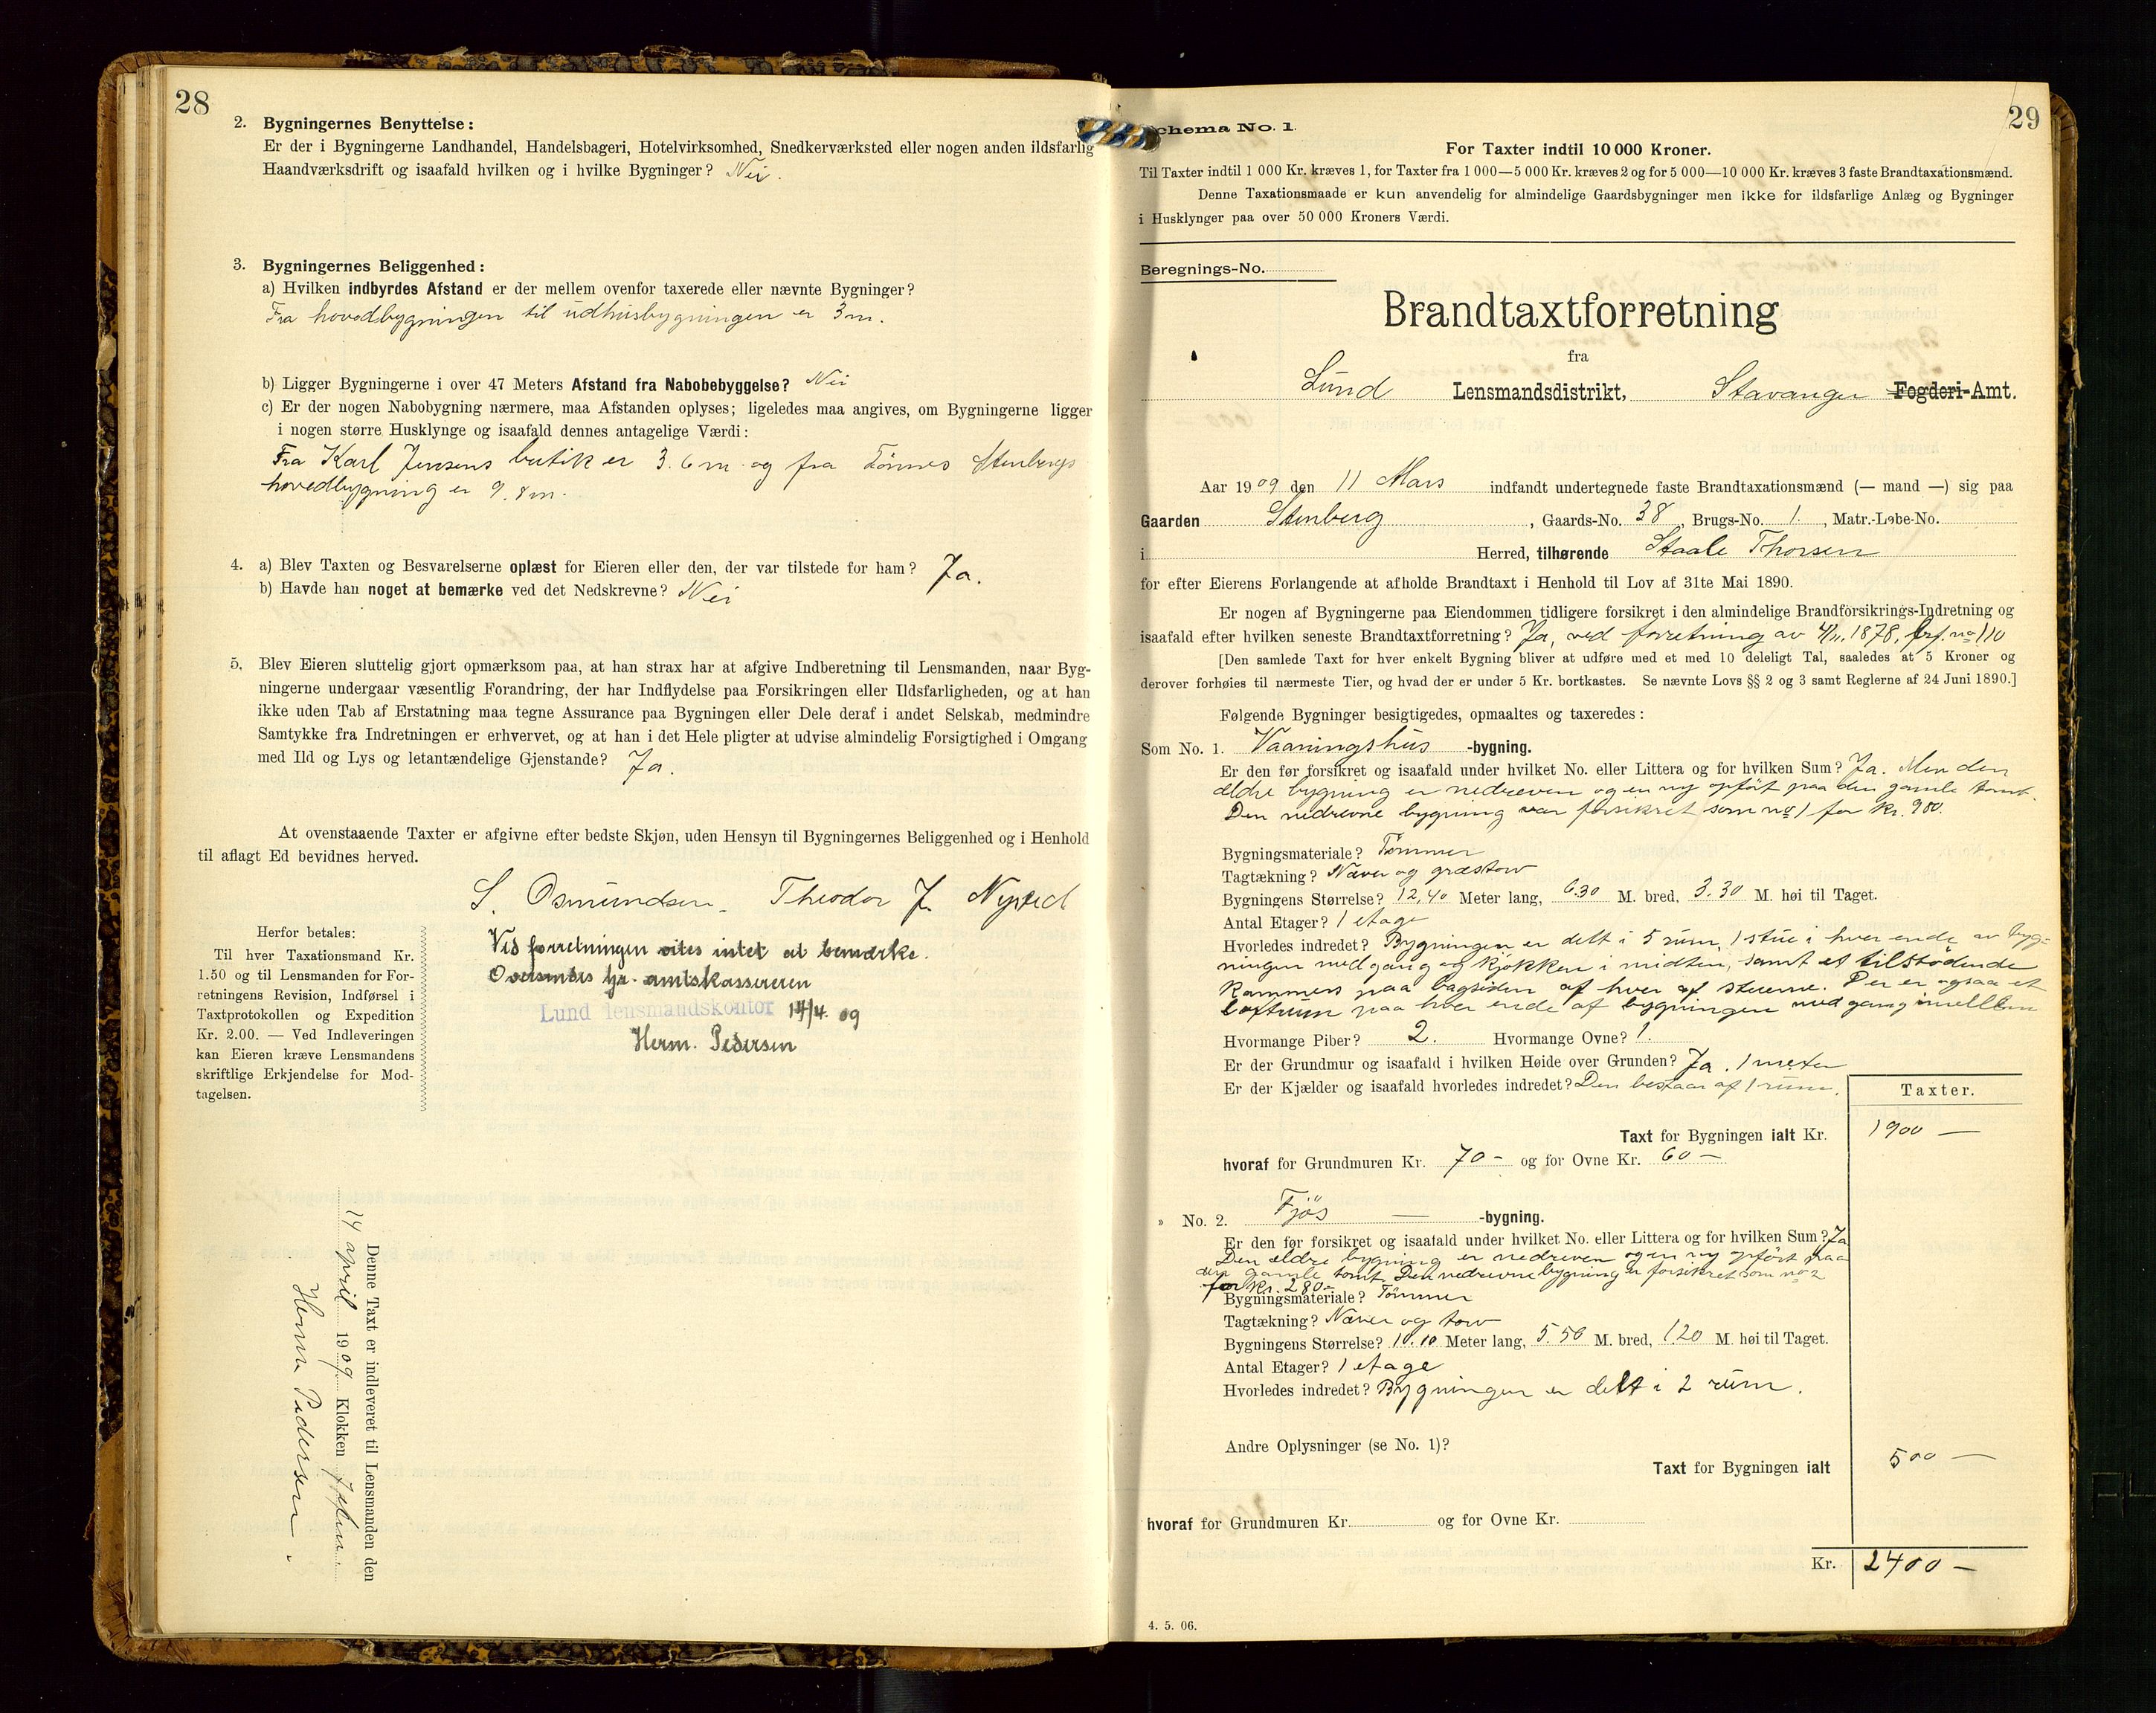 28
2. Bygningernes Benyttelse:
Er der i Bygningerne Landhandel, Handelsbageri, Hotelvirksomhed, Snedkerværksted eller nogen anden ildsfarlig
Haandværksdrift og isaafald hvilken og i hvilke Bygninger? Nei.
3. Bygningernes Beliggenhed:
a) Hvilken indbyrdes Afstand er der mellem ovenfor taxerede eller nævnte Bygninger?
Fra hovedbygningen til udhusbygningen er 3 m.
b) Ligger Bygningerne i over 47 Meters Afstand fra Nabobebyggelse? Nei
c) Er der nogen Nabobygning nærmere, maa Afstanden oplyses; ligeledes maa angives, om Bygningerne ligger
i nogen større Husklynge og isaafald dennes antagelige Værdi:
Fra Karl Jensens butik er 3.6 m. og fra Tønnes Stenbergs
hovedbygning er 9.8 m.
4. a) Blev Taxten og Besvarelserne oplæst for Eieren eller den, der var tilstede for ham? Ja.
b) Havde han noget at bemærke ved det Nedskrevne? Nei
5. Blev Eieren sluttelig gjort opmærksom paa, at han strax har at afgive Indberetning til Lensmanden, naar Byg-
ningerne undergaar væsentlig Forandring, der har Indflydelse paa Forsikringen eller Ildsfarligheden, og at han
ikke uden Tab af Erstatning maa tegne Assurance paa Bygningen eller Dele deraf i andet Selskab, medmindre
Samtykke fra Indretningen er erhvervet, og at han i det Hele pligter at udvise almindelig Forsigtighed i Omgang
med Ild og Lys og letantændelige Gjenstande? Ja.
At ovenstaaende Taxter er afgivne efter bedste Skjøn, uden Hensyn til Bygningernes Beliggenhed og i Henhold
til aflagt Ed bevidnes herved.
S. Osmundsen. Theodor J. Nysted
Herfor betales:
Til hver Taxationsmand Kr.
1.50 og til Lensmanden for For-
retningens Revision, Indførsel i
Taxtprotokollen og Expedition
Kr. 2.00. — Ved Indleveringen
kan Eieren kræve Lensmandens
skriftlige Erkjendelse for Mod-
tagelsen.
Ved forretningen vites intet at bemærke.
Oversendes hr. amtskassereren
Lund lensmandskontor 14/4. 09
Herm. Pedersen
Denne Taxt er indleveret til Lensmanden den
14 april 1909. Klokken 7 efm.
Herm Pedersen.
29
Schema No. 1.
For Taxter indtil 10 000 Kroner.
Til Taxter indtil 1 000 Kr. kræves 1, for Taxter fra 1 000—5 000 Kr. kræves 2 og for 5 000—10 000 Kr. kræves 3 faste Brandtaxationsmænd.
Denne Taxationsmaade er kun anvendelig for almindelige Gaardsbygninger men ikke for ildsfarlige Anlæg og Bygninger
i Husklynger paa over 50 000 Kroners Værdi.
Beregnings-No.
Brandtaxtforretning
fra
Lund Lensmandsdistrikt, Stavanger Fogderi-Amt.
Aar 1909 den 11 Mars indfandt undertegnede faste Brandtaxationsmænd (— mand —) sig paa
Gaarden Stenberg, Gaards-No. 38, Brugs-No. 1., Matr.-Løbe-No.
i Herred, tilhørende Staale Thorsen
for efter Eierens Forlangende at afholde Brandtaxt i Henhold til Lov af 31te Mai 1890.
Er nogen af Bygningerne paa Eiendommen tidligere forsikret i den almindelige Brandforsikrings-Indretning og
isaafald efter hvilken seneste Brandtaxtforretning? Ja, ved forretning av 4/11. 1878, brf. no 110
[Den samlede Taxt for hver enkelt Bygning bliver at udføre med et med 10 deleligt Tal, saaledes at 5 Kroner og
derover forhøies til nærmeste Tier, og hvad der er under 5 Kr. bortkastes. Se nævnte Lovs §§ 2 og 3 samt Reglerne af 24 Juni 1890.]
Følgende Bygninger besigtigedes, opmaaltes og taxeredes:
Som No. 1. Vaaningshus -bygning.
Er den før forsikret og isaafald under hvilket No. eller Littera og for hvilken Sum? Ja. Men den
ældre bygning er nedreven og en ny opført paa den gamle tomt.
Den nedrevne bygning var forsikret som no 1 for kr. 900.
Bygningsmateriale? Tømmer
Tagtækning? Næver og græstorv
Bygningens Størrelse? 12,40 Meter lang, 6.30 M. bred, 3.30 M. høi til Taget.
Antal Etager? 1 etage
Hvorledes indredet? Bygningen er delt i 5 rum, 1 stue i hver ende av byg-
ningen med gang og kjøkken i midten, samt et tilstødende
kammers paa bagsiden af hver af stuerne. Der er ogsaa et
loftrum paa hver ende af bygningen med gang imellem
Hvormange Piber? 2. Hvormange Ovne? 1.
Er der Grundmur og isaafald i hvilken Høide over Grunden? Ja. 1 meter
Er der Kjælder og isaafald hvorledes indredet? Den bestaar af 1 rum.
Taxter.
Taxt for Bygningen ialt Kr. 1900 —
hvoraf for Grundmuren Kr. 70 - og for Ovne Kr. 60 —
» No. 2. Fjøs — -bygning.
Er den før forsikret og isaafald under hvilket No. eller Littera og for hvilken Sum? Ja
Den ældre bygning er nedreven og en ny opført paa
den gamle tomt. Den nedrevne bygning er forsikret som no 2
for kr. 280 -
Bygningsmateriale? Tømmer
Tagtækning? Næver og torv
Bygningens Størrelse? 10.10 Meter lang, 5.50 M. bred, 1.20 M. høi til Taget.
Antal Etager? 1 etage
Hvorledes indredet? Bygningen er delt i 2 rum.
Andre Oplysninger (se No. 1)?
Taxt for Bygningen ialt 500 —
hvoraf for Grundmuren Kr. og for Ovne Kr.
Kr. 2400 —
4. 5. 06.